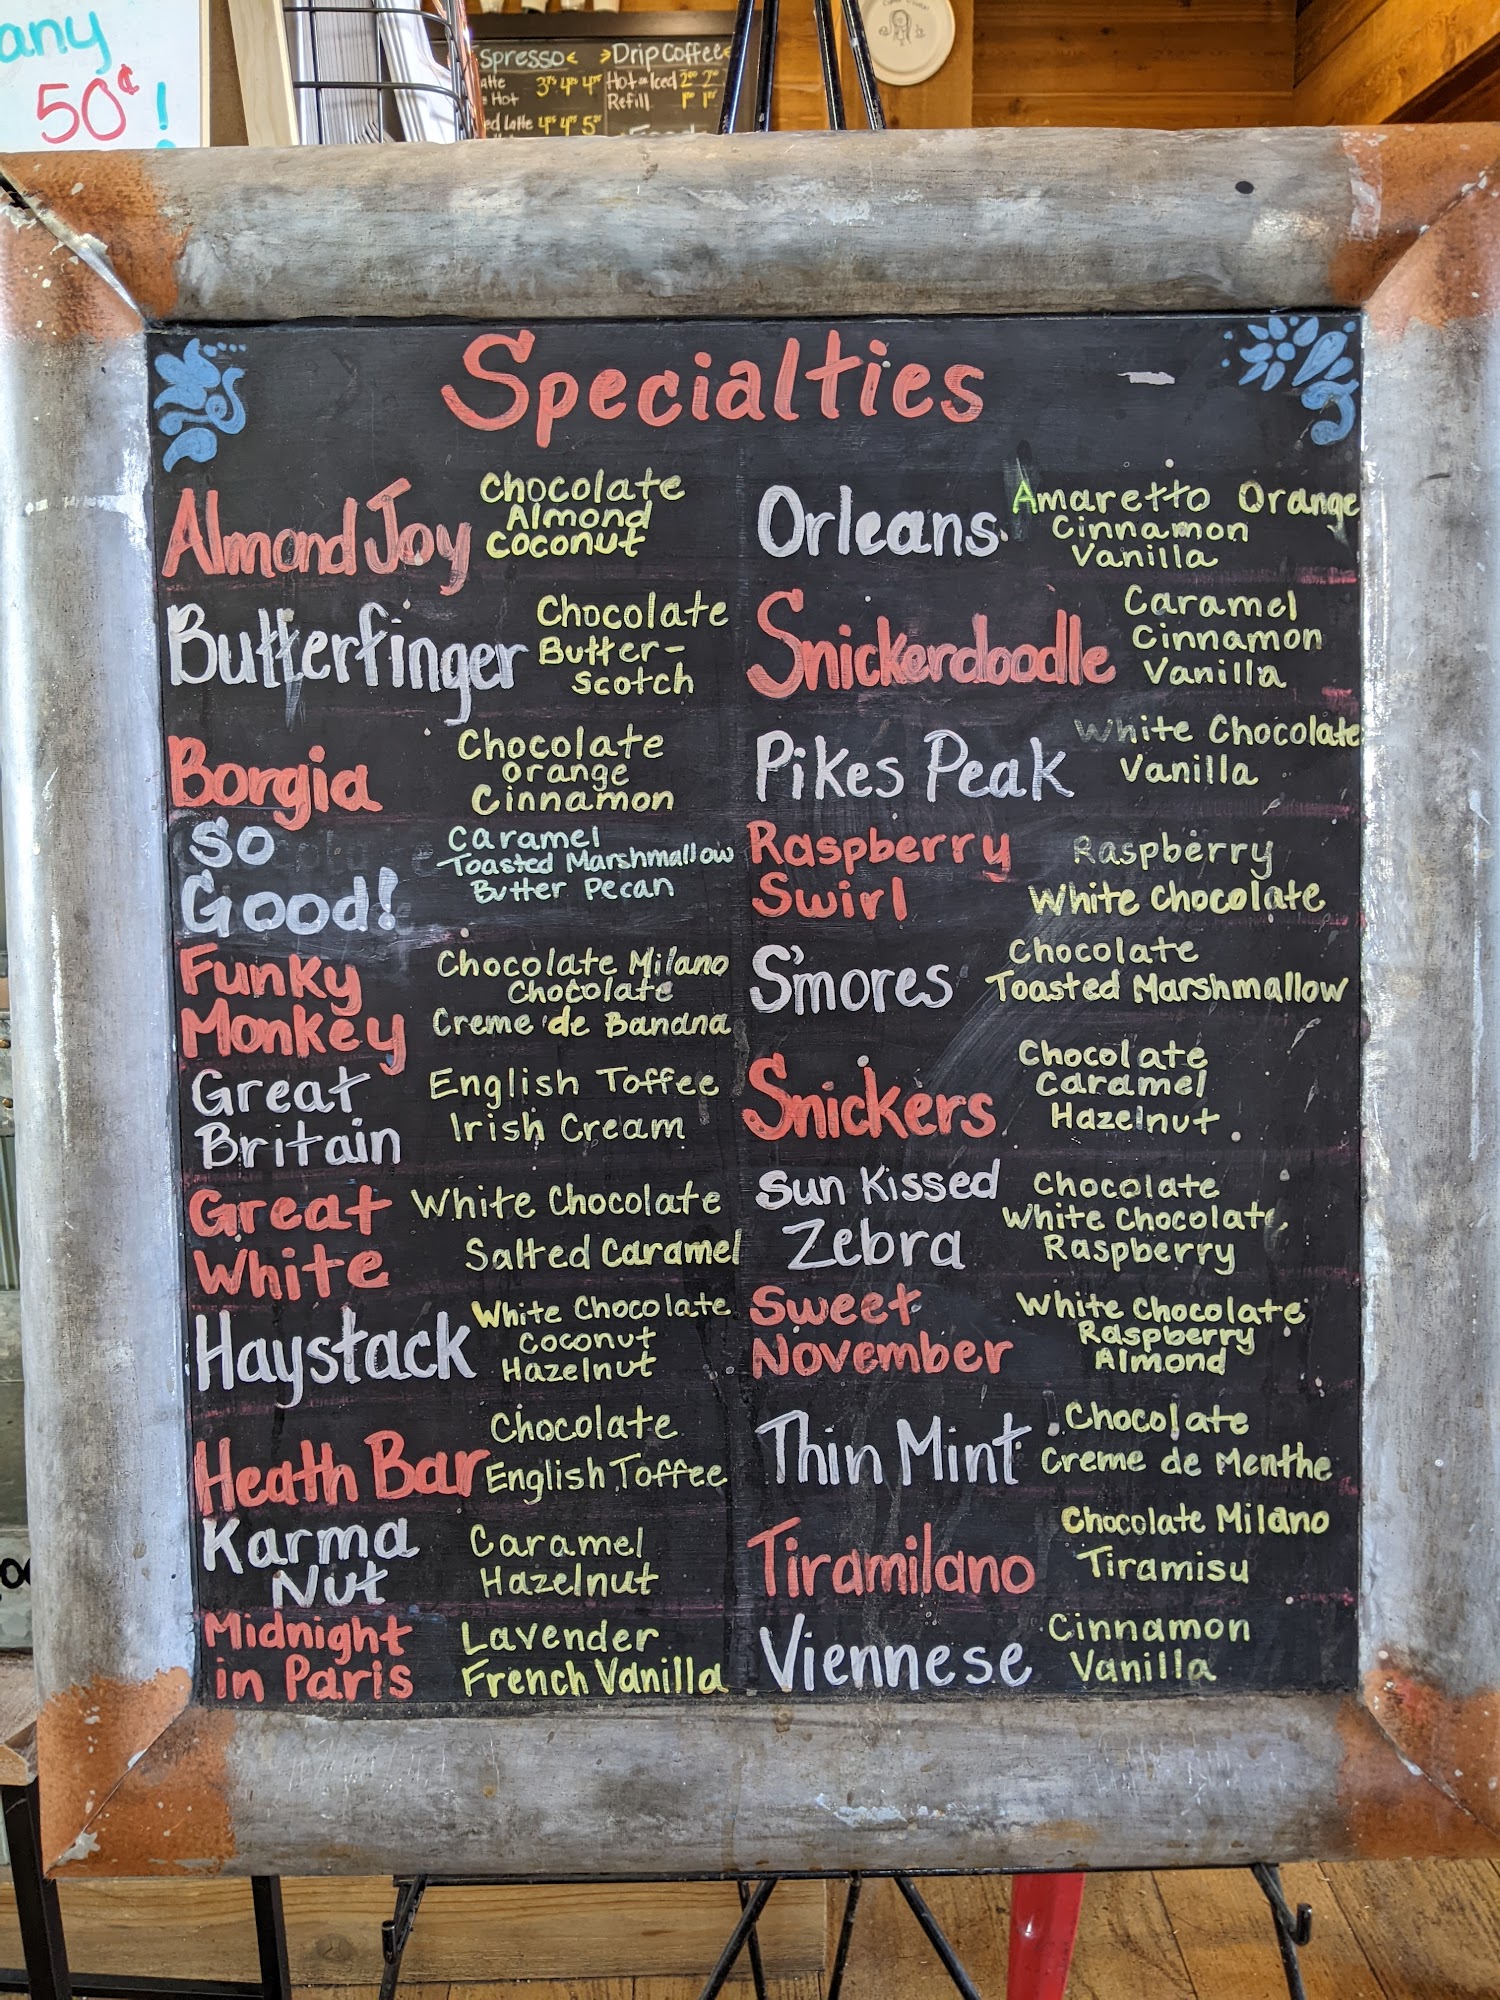 any
50¢!
Drip Coffee
Hot or Iced 2⁰⁰ 2
Refill
Specialties
Almond Joy
Chocolate
Almond
Coconut
Butterfinger
Chocolate
Butter-
Scotch
Borgia
Chocolate
Orange
Cinnamon
So
Good!
Caramel
Toasted Marshmallow
Butter Pecan
Funky
Monkey
Chocolate Milano
Chocolate
Creme de Banana
Great
Britain
English Toffee
Irish Cream
Great
White
White Chocolate
Salted Caramel
Haystack
White Chocolate
Coconut
Hazelnut
Heath Bar
Chocolate
English Toffee
Karma
Nut
Caramel
Hazelnut
Midnight
in Paris
Lavender
French Vanilla
Orleans
Amaretto Orange
Cinnamon
Vanilla
Snickerdoodle
Caramel
Cinnamon
Vanilla
Pikes Peak
White Chocolate
Vanilla
Raspberry
Swirl
Raspberry
White Chocolate
S'mores
Chocolate
Toasted Marshmallow
Snickers
Chocolate
Caramel
Hazelnut
Sun Kissed
Zebra
Chocolate
White Chocolate
Raspberry
Sweet
November
White Chocolate
Raspberry
Almond
Thin Mint
Chocolate
Creme de Menthe
Tiramilano
Chocolate Milano
Tiramisu
Viennese
Cinnamon
Vanilla